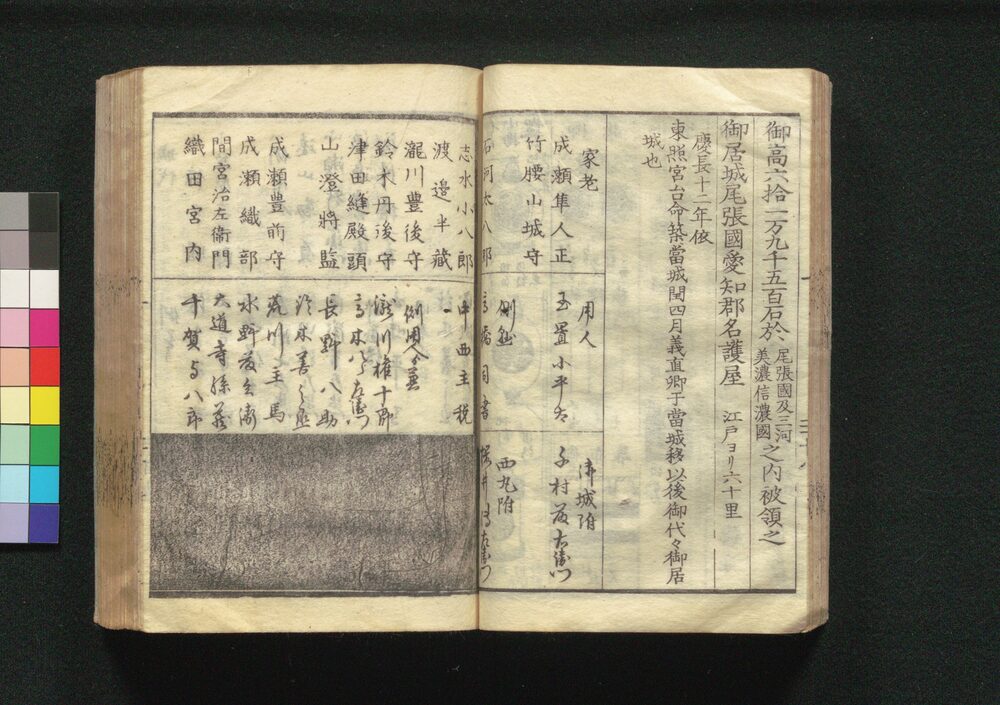 御高六拾一万九千五百石於尾張國及三河美濃信濃國之内被領之
御居城尾張國愛知郡名護屋 江戸ヨリ六十里
慶長十二年依
東照宮台命築當城閏四月義直卿于當城移以後御代々御居
城也
家老
成瀬隼人正
竹腰山城守
石河太八郎
用人
玉置小平太
側
高橋司書
御城附
西丸附
志水小八郎
渡邉半藏
瀧川豊後守
鈴木丹後守
津田縫殿頭
山澄將監
成瀬豊前守
成瀬織部
間宮治左衞門
織田宮内
中西主税
側用人兼
瀧川権十郎
高木八左衛門
長野八助
鈴木善之丞
荒川主馬
水野藤兵衛
大道寺孫藏
千賀与八郎